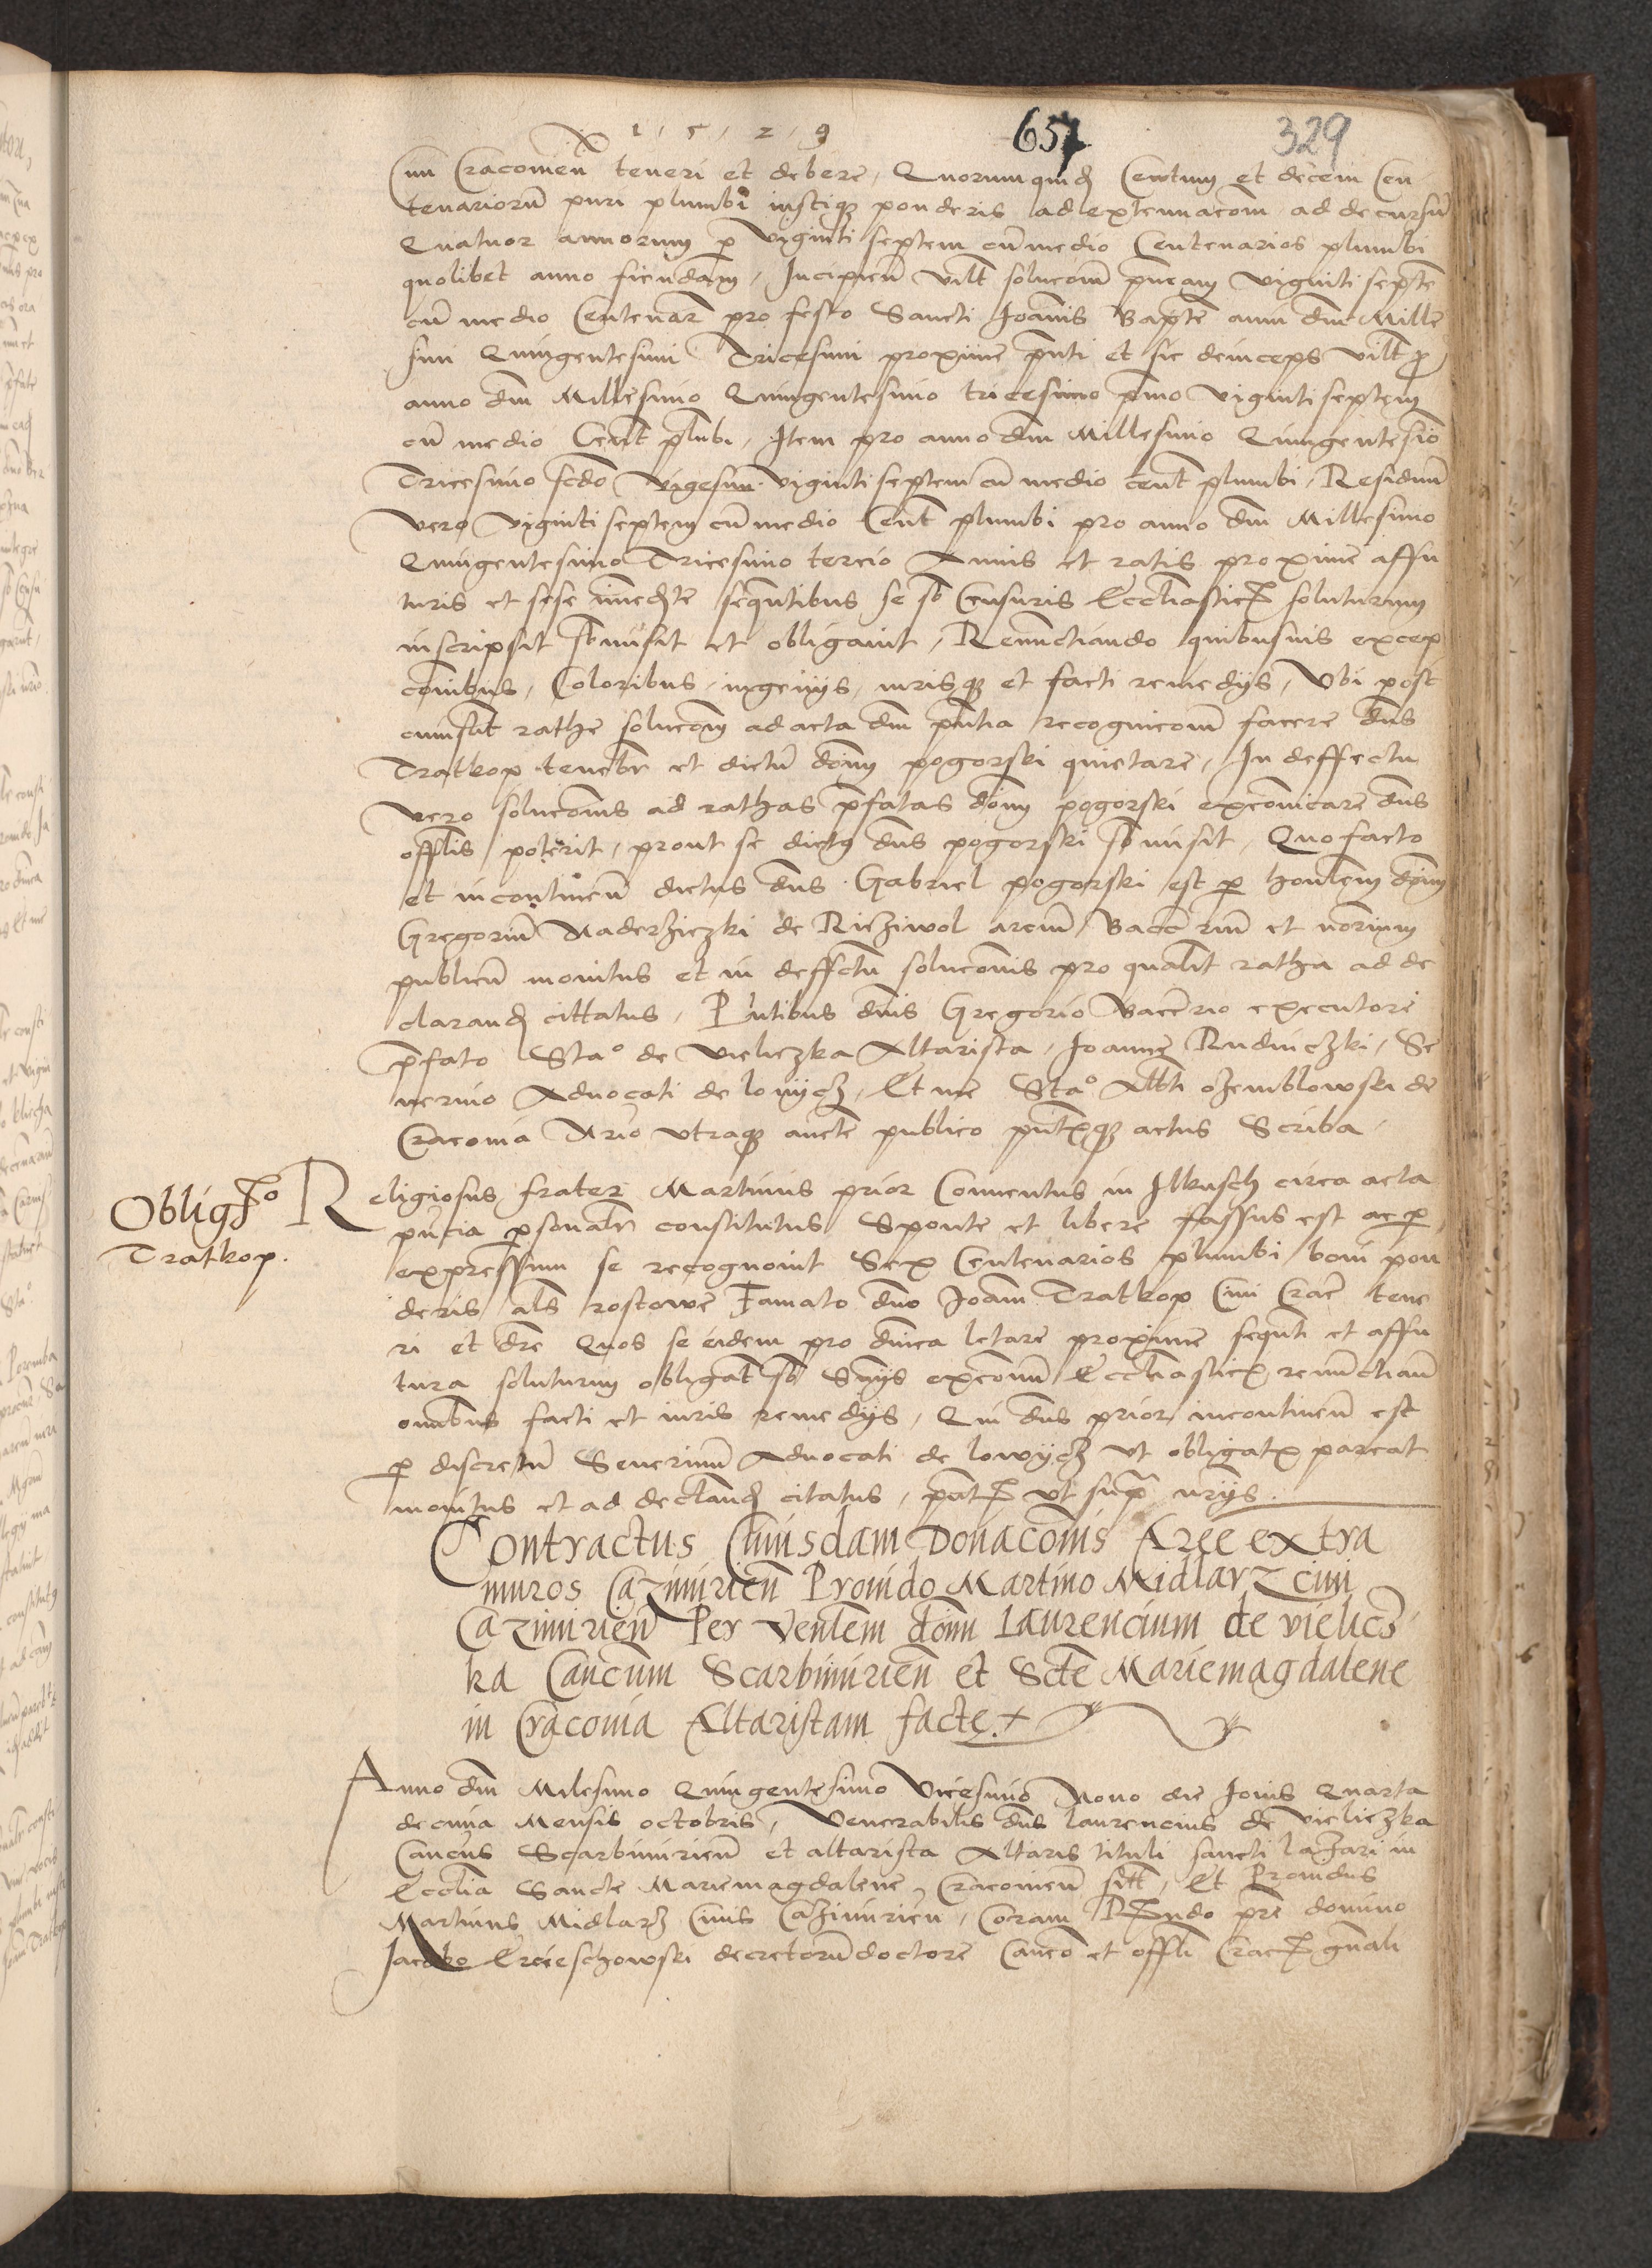 1 5 2 9
657
329
Civi Cracovień teneri et debere, Quorumquid Centum et decem Cen
tenariorū puri plumbi iustique ponderis ad extenuacom ad decursū
Quatuor annorum p viginti septem cū medio Centenarios plumbi
quolibet anno fiendam, Incipień vidlt solucom viginti septē
cū medio Centenar pro festo Sancti Joannis Baptē anni dni Mille
simi Quingentesimi Tricesimi proxime et sic deinceps vidlt pro
anno dni Millesimo Quingentesimo tricesimo pmo viginti septem
cū medio Cent plubi, Item pro anno dni Millesimo Quingentesio
Tricesimo scdo vigesim viginti septem cū medio cent plumbi, Residuū
vero viginti septem cū medio Cent plumbi pro anno dni Millesimo
Quingentesimo Tricesimo tercio Annis et ratis proxime affu
turis et sese imediāte sequētibus se sb Censuris Ecclīasticis soluturum
inscripsit sbmisit et obligavit, Renunctiando quibusvis excep
conibus, Coloribus, ingenijs, iurisque et facti remedijs, Ubi post
cuiuslt rathe solucom ad acta dni pntia recognicom facere dns
Tratkop tenebr et dictū dom pogorski quietare, In deffectu
vero soluconis ad rathas pfatas dom pogorski excomicare dns
offlis poterit, prout se dictus dns pogorski sbmisit, Quo facto
et incontineñ dictus dns Gabriel pogorski est p honlem dom
Gregoriū Naderziczki de Ricziwol arciū Bacc et norium
publicū monitus et in deffctu soluconis pro qualt ratha ad de
clarand cittatus, Pntibus dnis Gregorio executore
pfato Stao de Vieliczka Altarista, Joanne Rudniczki, Se
verino Advocati de lovijcz, Et me Stao Albti ozemblowski de
Cracovia Nrio utraque aucte publico actus Scriba
Obligo
Tratkop.
Religiosus frater Martinus prior Conventus in Ilkusch circa acta
pncia psonalr constitutus Sponte et libere fassus est ac p
expressum se recognovit Sex Centenarios plumbi boni pon
deris als rostowe Famato dno Joani Tratkop Civi Crac tene
ri et dre Quos se eidem pro dnica letare proxime sequti et affu
tura soluturum obligat sb Snijs excomu Ecclīasticis renunctiań
omibus facti et iuris remedijs, Qui dns prior incontineń est
p discretū Severinū Advocati de lowijcz ut obligat pareat
monitus et ad declrand citatus, pntibus ut supra nrijs.
Contractus Cuiusdam Donaconis Aree extra
muros Cazimirień Provido Martino Midlarz civi
Cazimirień Per Venlem dom Laurencium de vielicz
ka Canćum Scarbimirień et Scte Mariemagdalene
in Cracovia Altaristam facte.
Anno dni Milesimo Quingentesimo Vicesimo Nono die Jovis Quarta
decima Mensis octobris, Venerabilis dns laurencius de Vieliczka
Canćus Scarbimirień et altarista Altaris tituli sancti lazari in
Ecclīa Sancte Mariemagdalene Cracovień sitt, Et Providus
Martinus Midlarz Civis Cazimirień, Coram Rndo pre domino
Jacobo Ercieschowski decretorū doctore Canco et offli Crac gnali